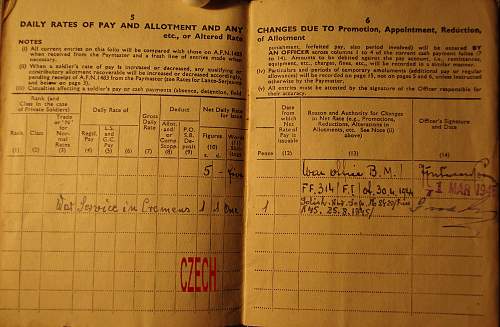 5
DAILY RATES OF PAY AND ALLOTMENT AND ANY
etc., or Altered Rate
NOTES
(i) All current entries on this folio will be compared with those on A.F.N.1483
when received from the Paymaster and a trash line of entries made when
necessary.
(ii) When a soldier's rate of pay is increased or decreased, any qualifying or
contributory allotment recoverable will be increased or decreased accordingly,
pending receipt of A.F.N.1483 from the Paymaster
(iii) Casualties affecting a soldier's pay or cash payments (absence, detention, field
Rank (and
Class in the case
of Private Soldiers)
Daily Rate of
Deduct
Net Daily Rate
for Issue
Rank
(1)
Class
(2)
Trade
or "N"
for
Nor-
mal
Rates
(3)
Regtl.
Pay
(4)
(5)
(6)
Gross
Daily
Rate
(7)
(8)
P.O.
S.B.
De-
posit
(9)
Figures
(10)
s. d.
Words
(11)
5 - Five
War Service in Cremens 1 1 One
CZECH
6
CHANGES DUE TO Promotion, Appointment, Reduction,
of Allotment
punishment, forfeited pay, also period involved) will be entered BY
AN OFFICER across columns 1 to 4 of the current cash payment folios (7
to 14). Amounts to be debited against the pay account, i.e., remittances,
equipment, etc., charges, fines, etc., will be recorded in a similar manner.
(iv) Particulars and periods of temporary emoluments (additional pay or regular
allowances) will be recorded on page 15, not on pages 5 and 6, unless instructed
otherwise by the Paymaster.
(v) All entries must be attested by the signature of the Officer responsible for
their accuracy.
Pence
Date
from
which
Net
Rate of
Pay is
Issuable
(12)
Reason and Authority for Changes
in Net Rate (e.g., Promotions,
Reductions, Alterations in
Allotments, etc. See Note (ii)
above)
(13)
Officer's Signature
and Date
(14)
War office B.M.
FF.314/F.I d. 30.4.1944
1 MAR 194
1
145. 25.8.1945/